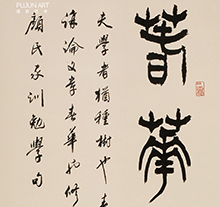 FUJUN ART
春華
夫學者猶種樹也春
講論文章春華也修
顏氏家訓勉學句